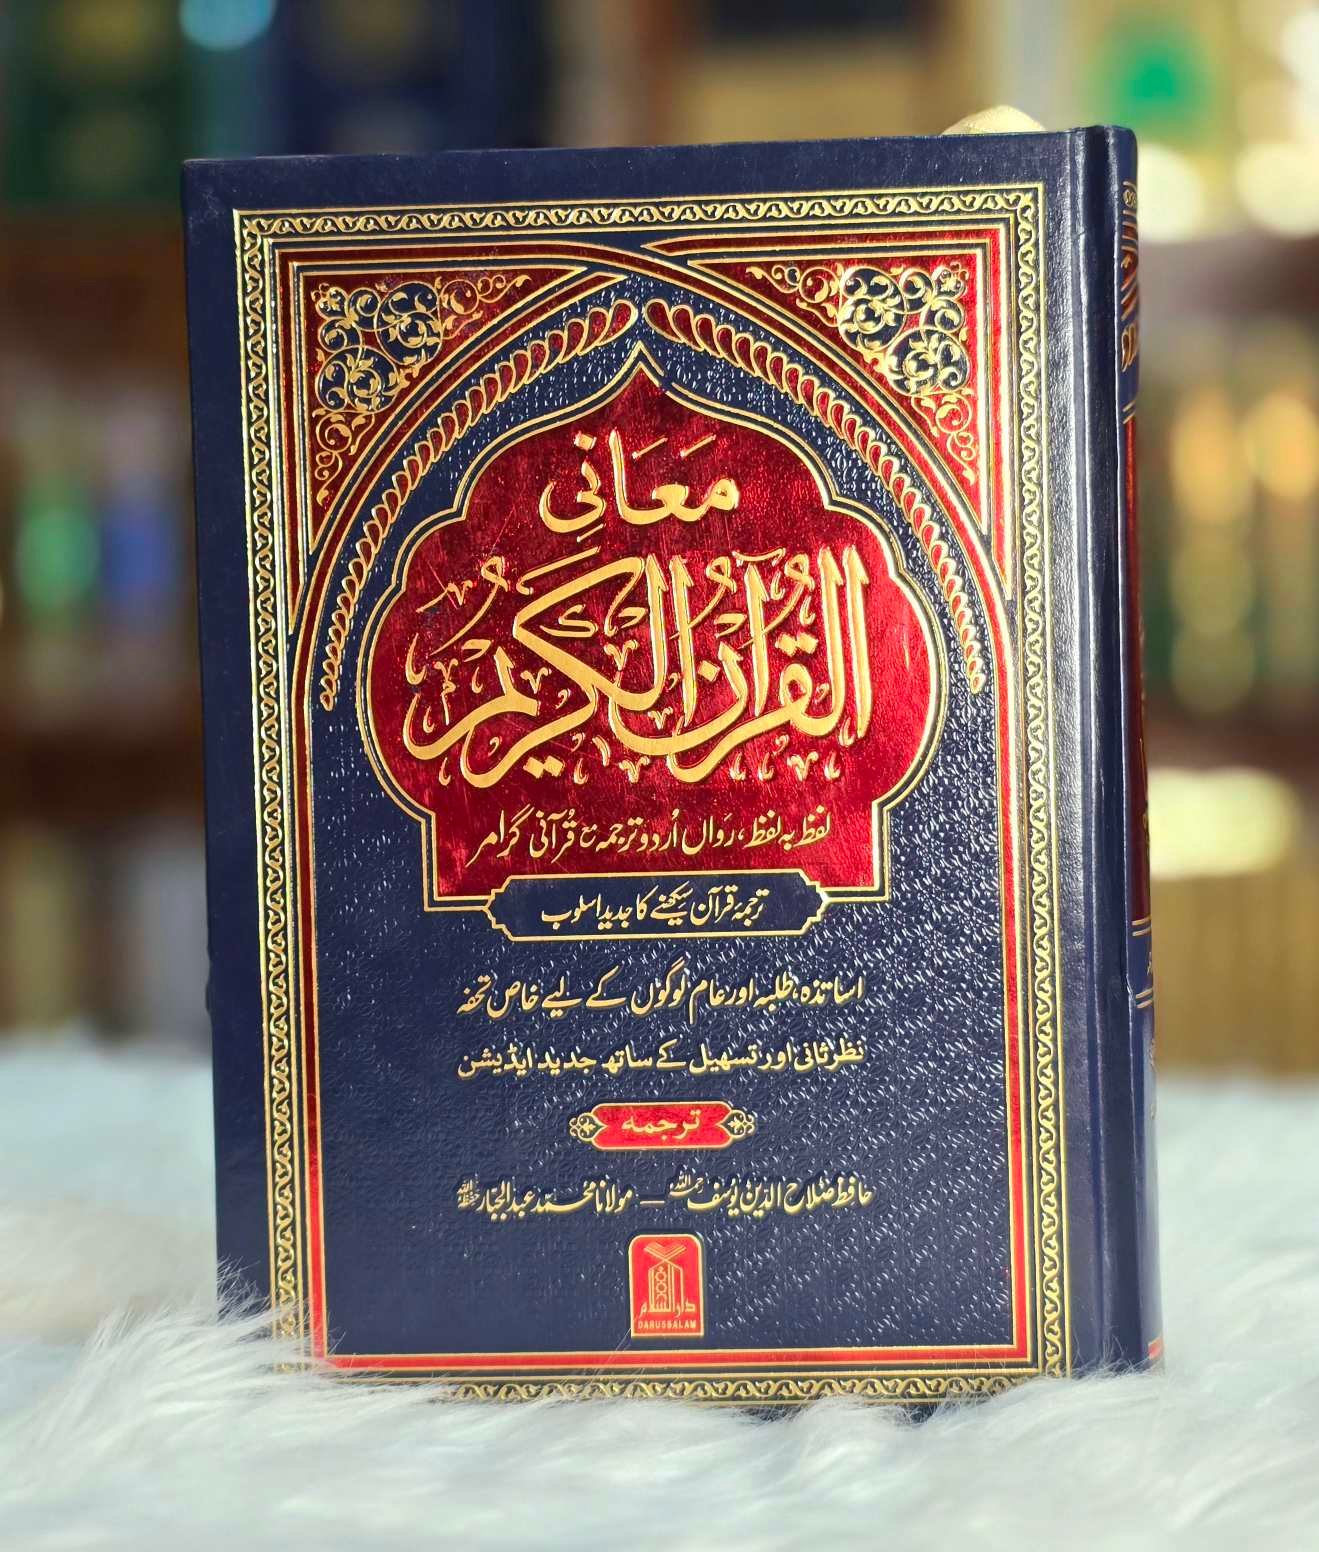 مَعَانِي
القُرآن الكَرِيمُ
لفظ بہ لفظ، رَواں اُردو ترجمہ مع قُرآنی گرامر
ترجمۂ قرآن سیکھنے کا جدید اسلوب
اساتذہ، طلبہ اور عام لوگوں کے لیے خاص تحفہ
نظرثانی اور تسہیل کے ساتھ جدید ایڈیشن
ترجمہ
حافظ صلاح الدین یُوسف رحمہ اللہ — مولانا محمد عبدالجبار حفظہ اللہ
دارالسلام
DARUSSALAM